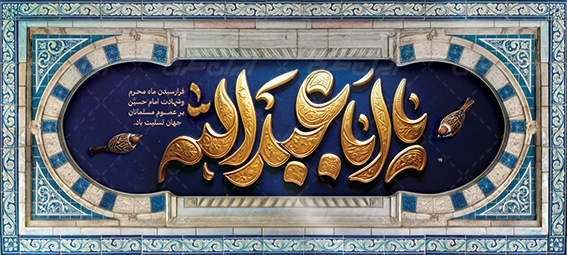 یا ابا عبدالله
فرارسیدن ماه محرم
وشهادت امام حسین
بر عموم مسلمانان
جهان تسلیت باد.